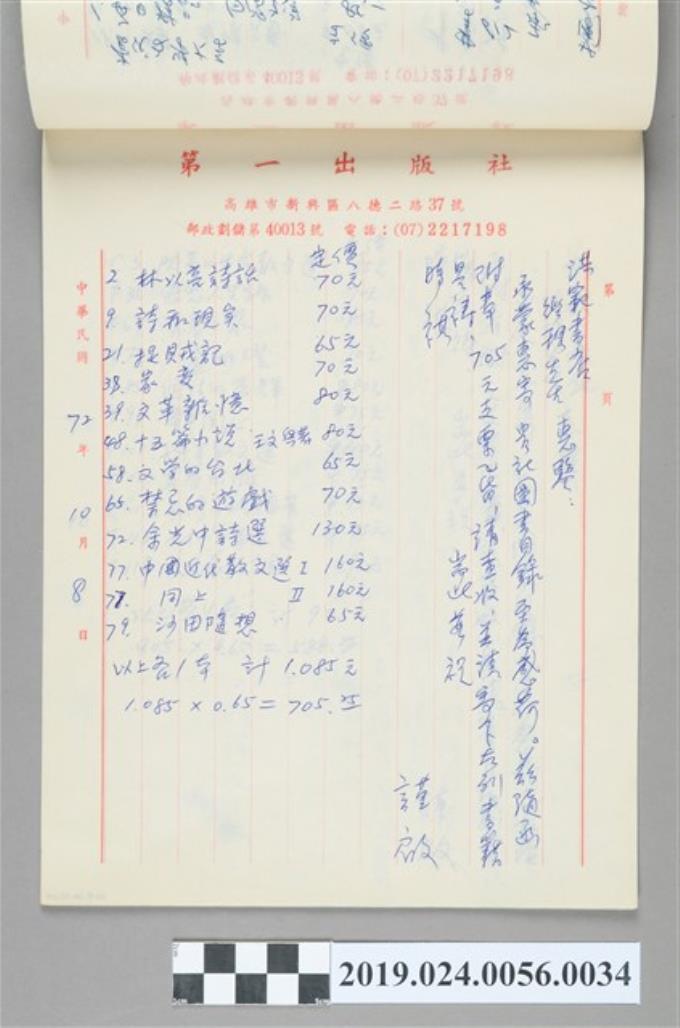 第一出版社
高雄市新興區八德二路37號
郵政劃儲第40013號 電話:(07)2217198
第 頁
洪範書店
惠鑒:
承蒙惠寄貴社圖書目錄至為感荷。茲隨函
附奉705元支票乙張,請查收,並請寄下右列書籍
為禱 耑此 敬祝
時祺
謹啟
定價
2. 林以亮詩話 70元
9. 詩和現實 70元
21. 捉賊記 65元
38. 家變 70元
39. 文革雜憶 80元
48. 十五篇小說 王文興著 80元
58. 文学的台北 65元
65. 禁忌的遊戲 70元
72. 余光中詩選 130元
77. 中國近代散文選 I 160元
77. 同上 II 160元
79. 沙田隨想 65元
以上各1本 計 1.085元
1.085 × 0.65 = 705.25
中華民國72年10月8日
2019.024.0056.0034